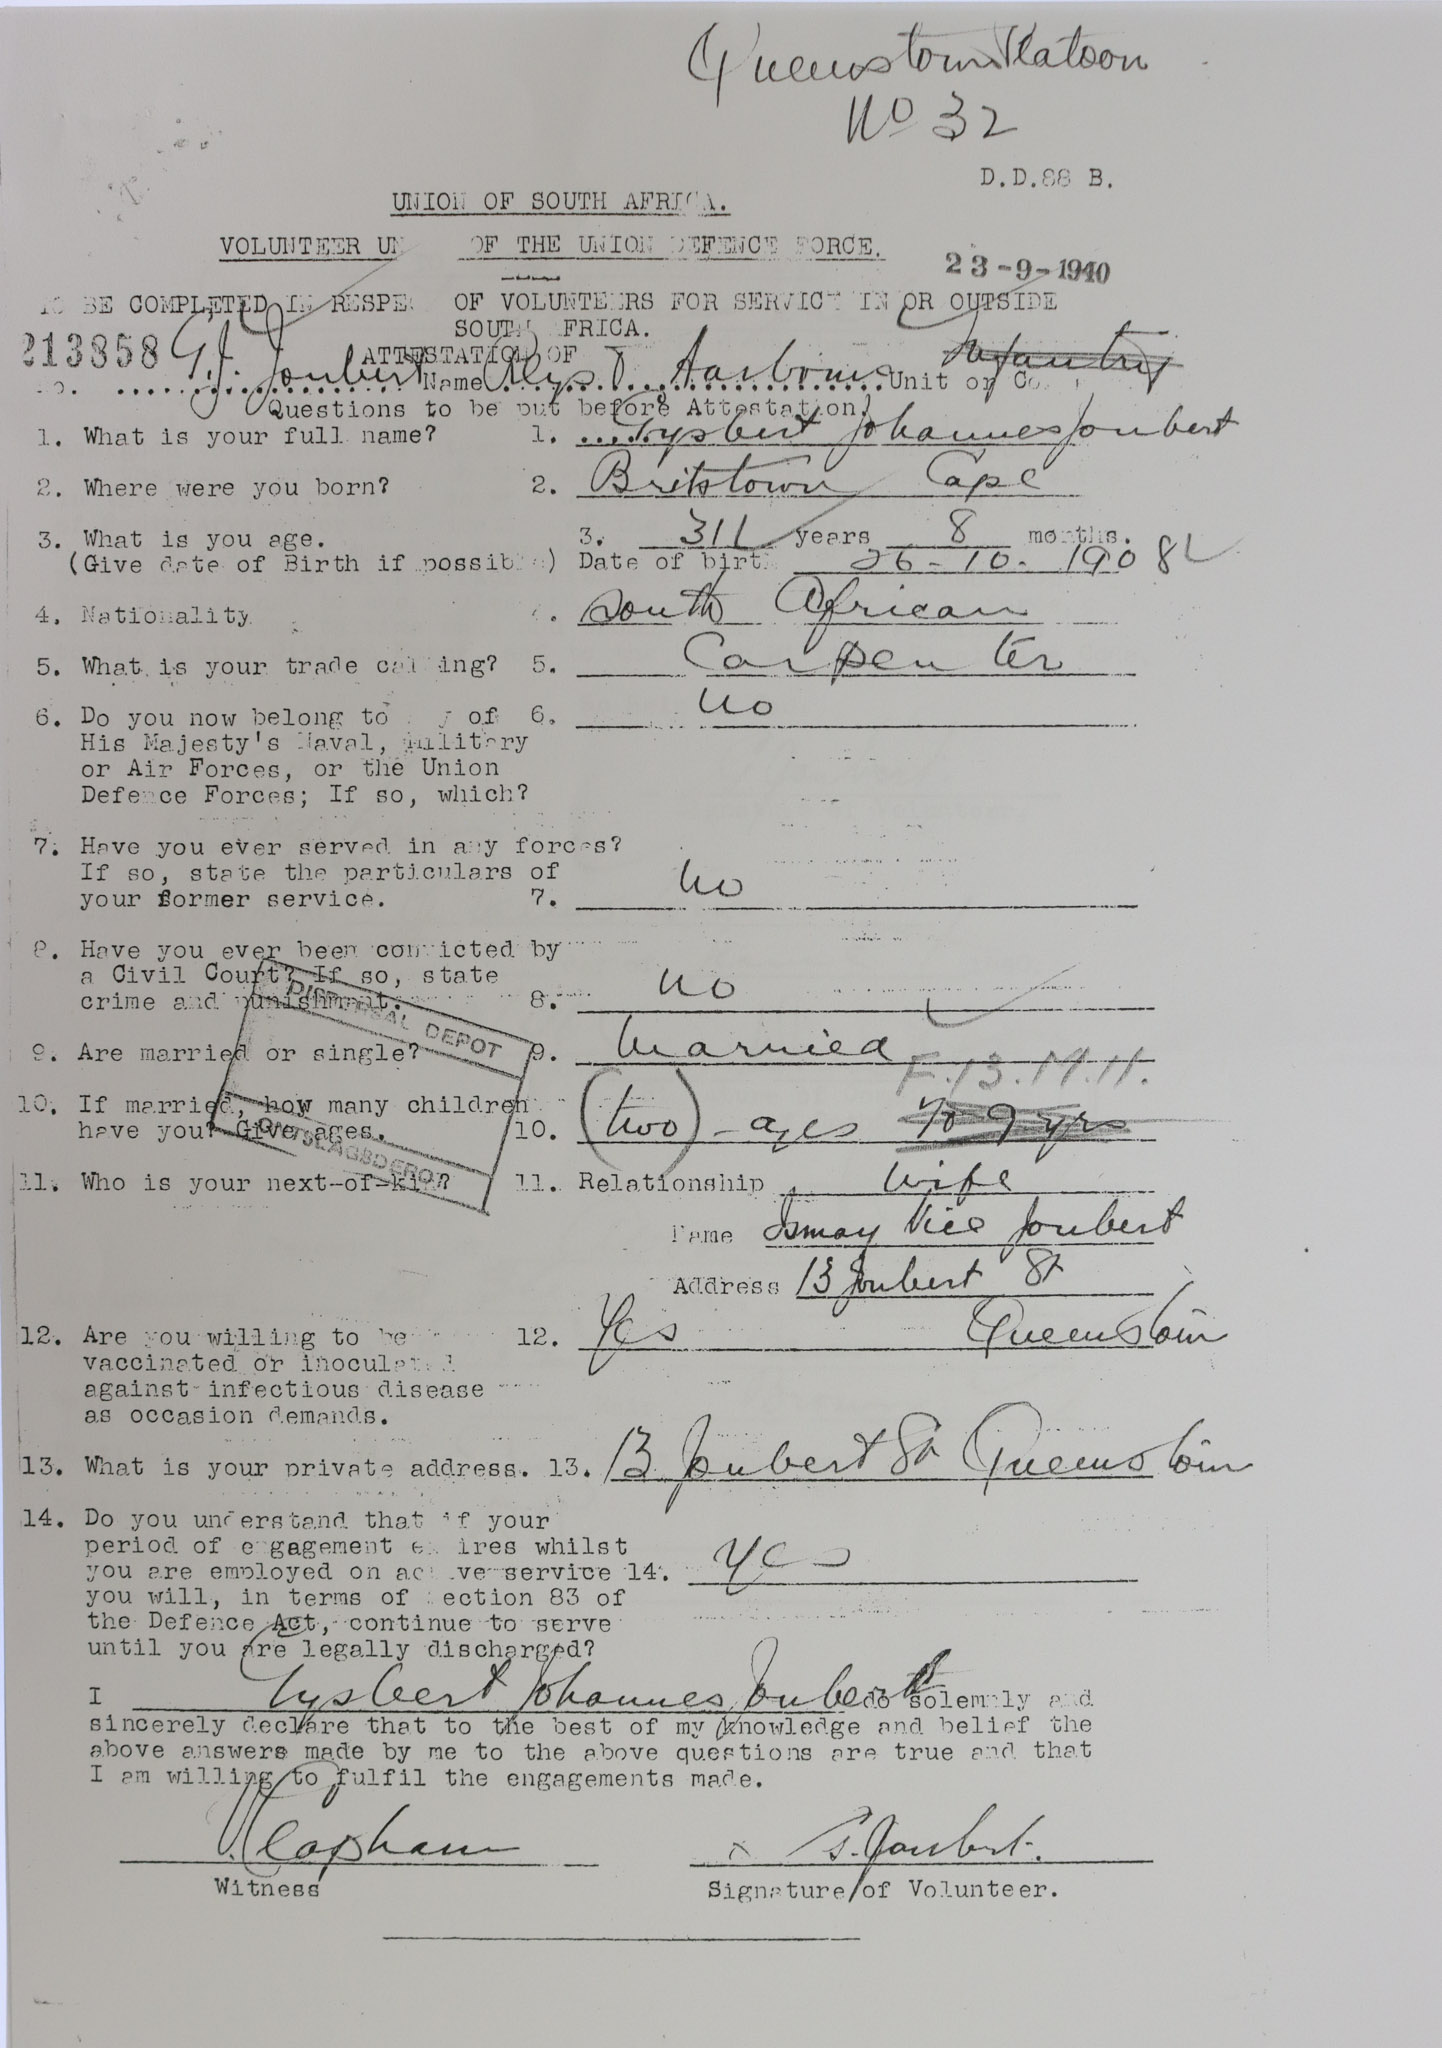 Queenstown Platoon
No 32
D.D.88 B.
UNION OF SOUTH AFRICA.
VOLUNTEER UN OF THE UNION DEFENCE FORCE.
23-9-1940
TO BE COMPLETED IN RESPEC OF VOLUNTEERS FOR SERVICE IN OR OUTSIDE
SOUTH AFRICA.
213858 ATTESTATION OF
No. G.J. Joubert Name Unit or Co Infantry
Questions to be put before Attestation.
1. What is your full name? 1. Gysbert Johannes Joubert
2. Where were you born? 2. Britstown Cape
3. What is you age. 3. 31 years 8 months.
(Give date of Birth if possible) Date of birth 26-10-1908
4. Nationality 4. South African
5. What is your trade calling? 5. Carpenter
6. Do you now belong to any of 6. No
His Majesty's Naval, Military
or Air Forces, or the Union
Defence Forces; If so, which?
7. Have you ever served in any forces?
If so, state the particulars of
your former service. 7. No
8. Have you ever been convicted by
a Civil Court? If so, state
crime and punishment. 8. No
DISPERSAL DEPOT
9. Are married or single? 9. Married
F.13. M.11.
10. If married, how many children
have you? Give ages. 10. (two) - ages 9 yrs
ONTSLAGSDEPOT
11. Who is your next-of-kin? 11. Relationship Wife
Name Ismay Vice Joubert
Address 13 Joubert St
12. Are you willing to be 12. Yes Queenstown
vaccinated or inoculated
against infectious disease
as occasion demands.
13. What is your private address. 13. 13 Joubert St Queenstown
14. Do you understand that if your
period of engagement expires whilst
you are employed on active service 14. Yes
you will, in terms of Section 83 of
the Defence Act, continue to serve
until you are legally discharged?
I Gysbert Johannes Joubert do solemnly and
sincerely declare that to the best of my knowledge and belief the
above answers made by me to the above questions are true and that
I am willing to fulfil the engagements made.
Clapham x G. Joubert.
Witness Signature of Volunteer.